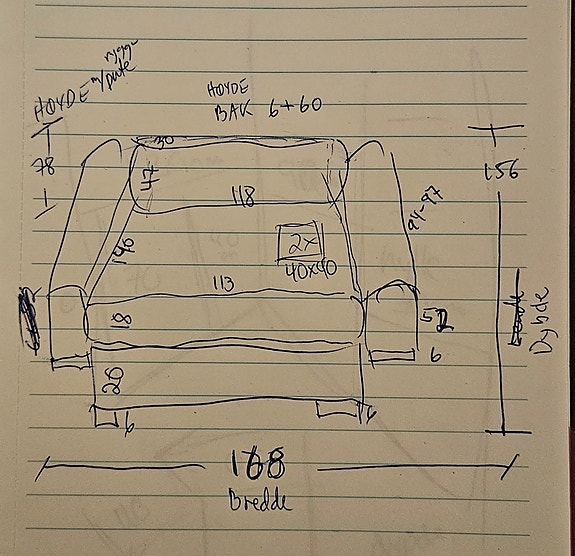 HØYDE m/pute
rygg-
HØYDE
BAK 6+60
78
30
47
118
156
94-97
140
2x
40x40
113
18
52
6
Dybde
26
6
6
168
Bredde